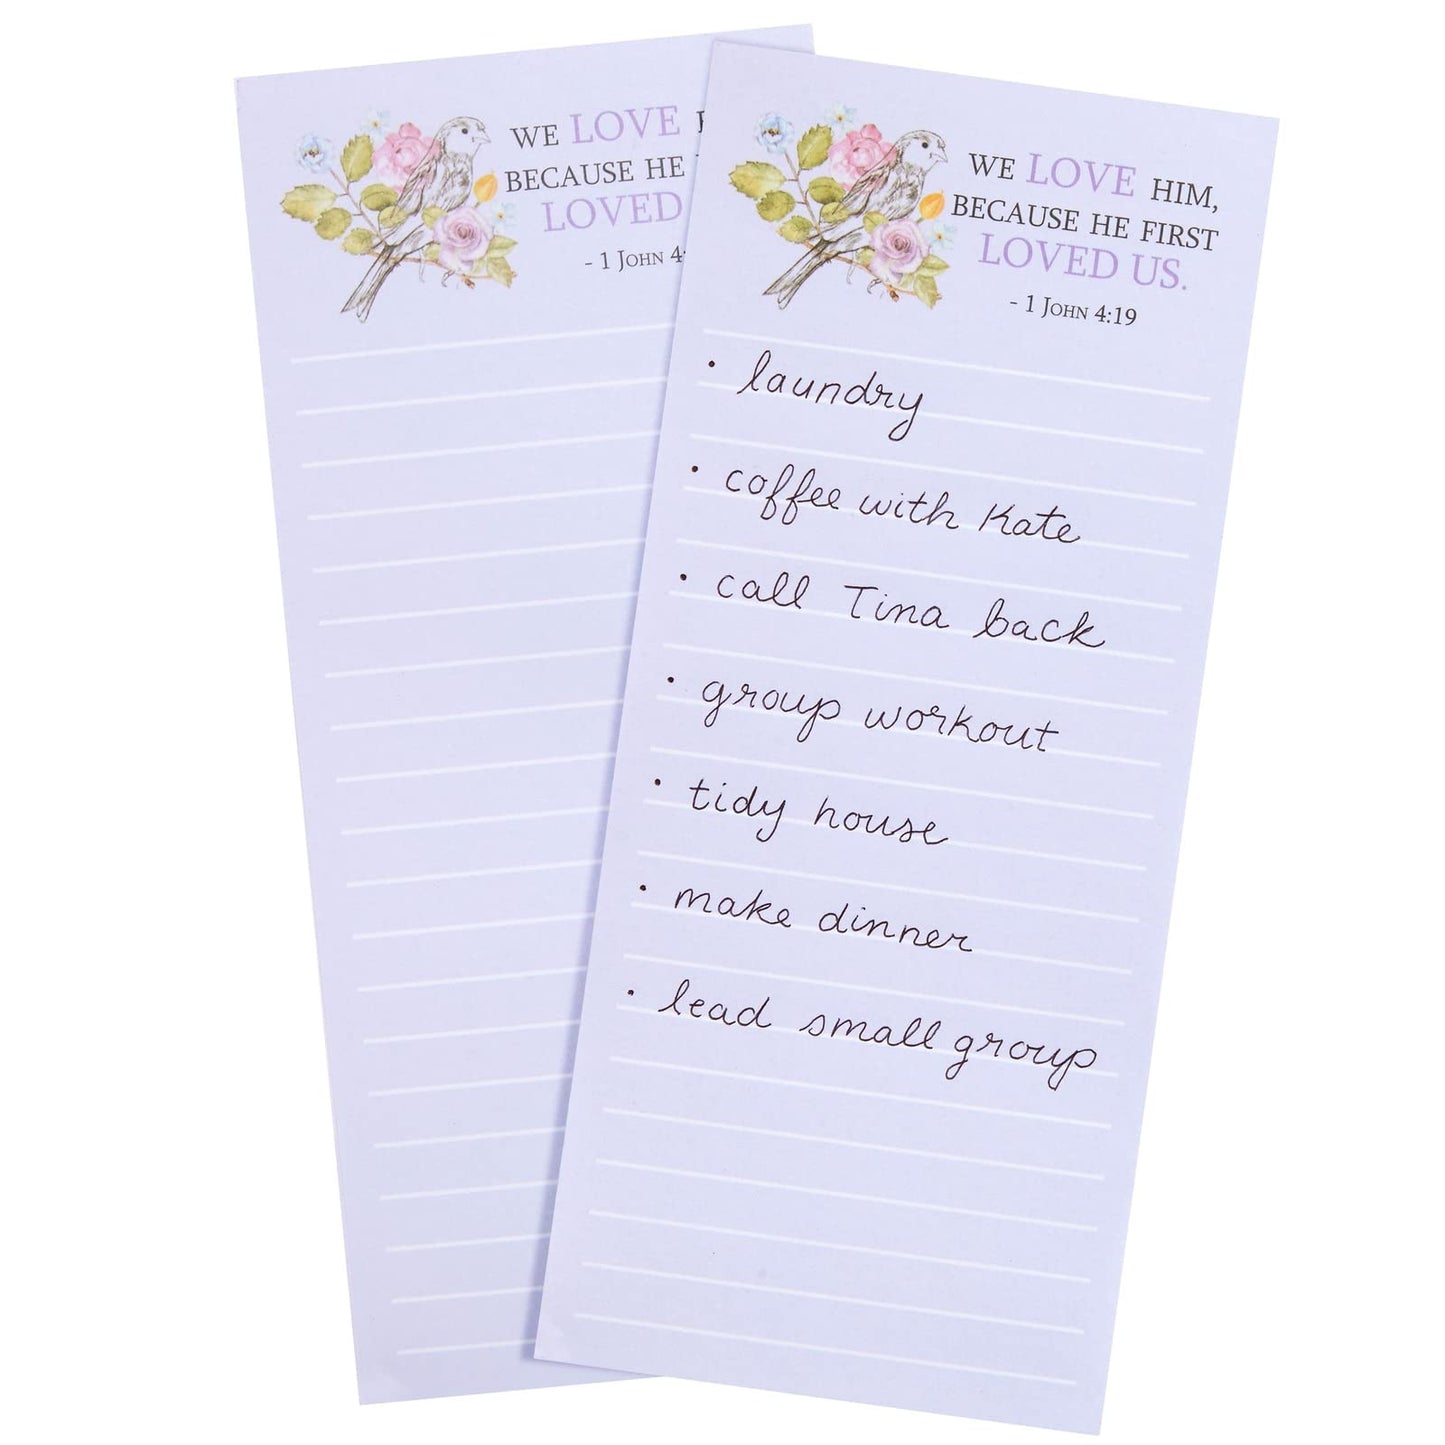 WE LOVE
BECAUSE HE
LOVED
- 1 JOHN 4:
WE LOVE HIM,
BECAUSE HE FIRST
LOVED US.
- 1 JOHN 4:19
• laundry
• coffee with Kate
• call Tina back
• group workout
• tidy house
• make dinner
• lead small group